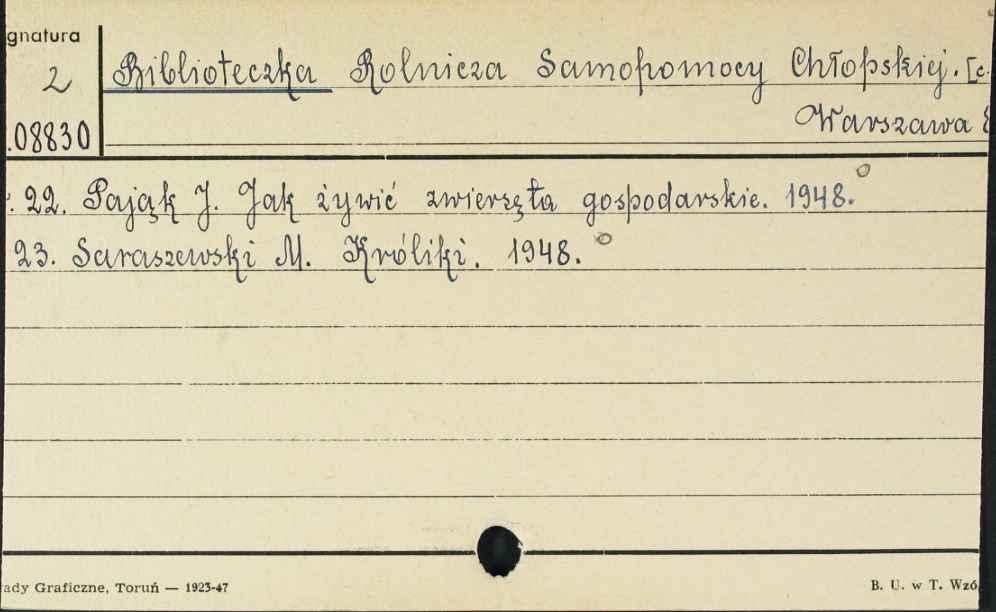 gnatura
2
Biblioteczka Rolnicza Samopomocy Chłopskiej. [c.
Warszawa
.08830
. 22. Pająk J. Jak żywić zwierzęta gospodarskie. 1948.
23. Saraszewski M. Króliki. 1948.
ady Graficzne, Toruń — 1923-47
B. U. w T. Wzó